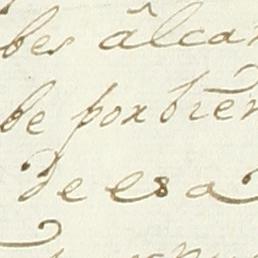 bes âlcan
be por bien
de esa